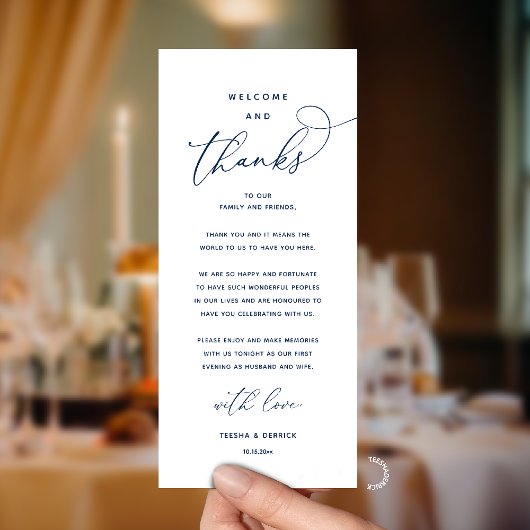 WELCOME
AND
thanks
TO OUR
FAMILY AND FRIENDS,
THANK YOU AND IT MEANS THE
WORLD TO US TO HAVE YOU HERE.
WE ARE SO HAPPY AND FORTUNATE
TO HAVE SUCH WONDERFUL PEOPLES
IN OUR LIVES AND ARE HONOURED TO
HAVE YOU CELEBRATING WITH US.
PLEASE ENJOY AND MAKE MEMORIES
WITH US TONIGHT AS OUR FIRST
EVENING AS HUSBAND AND WIFE.
with love,
TEESHA & DERRICK
10.15.20xx.
TEESHADERRICK